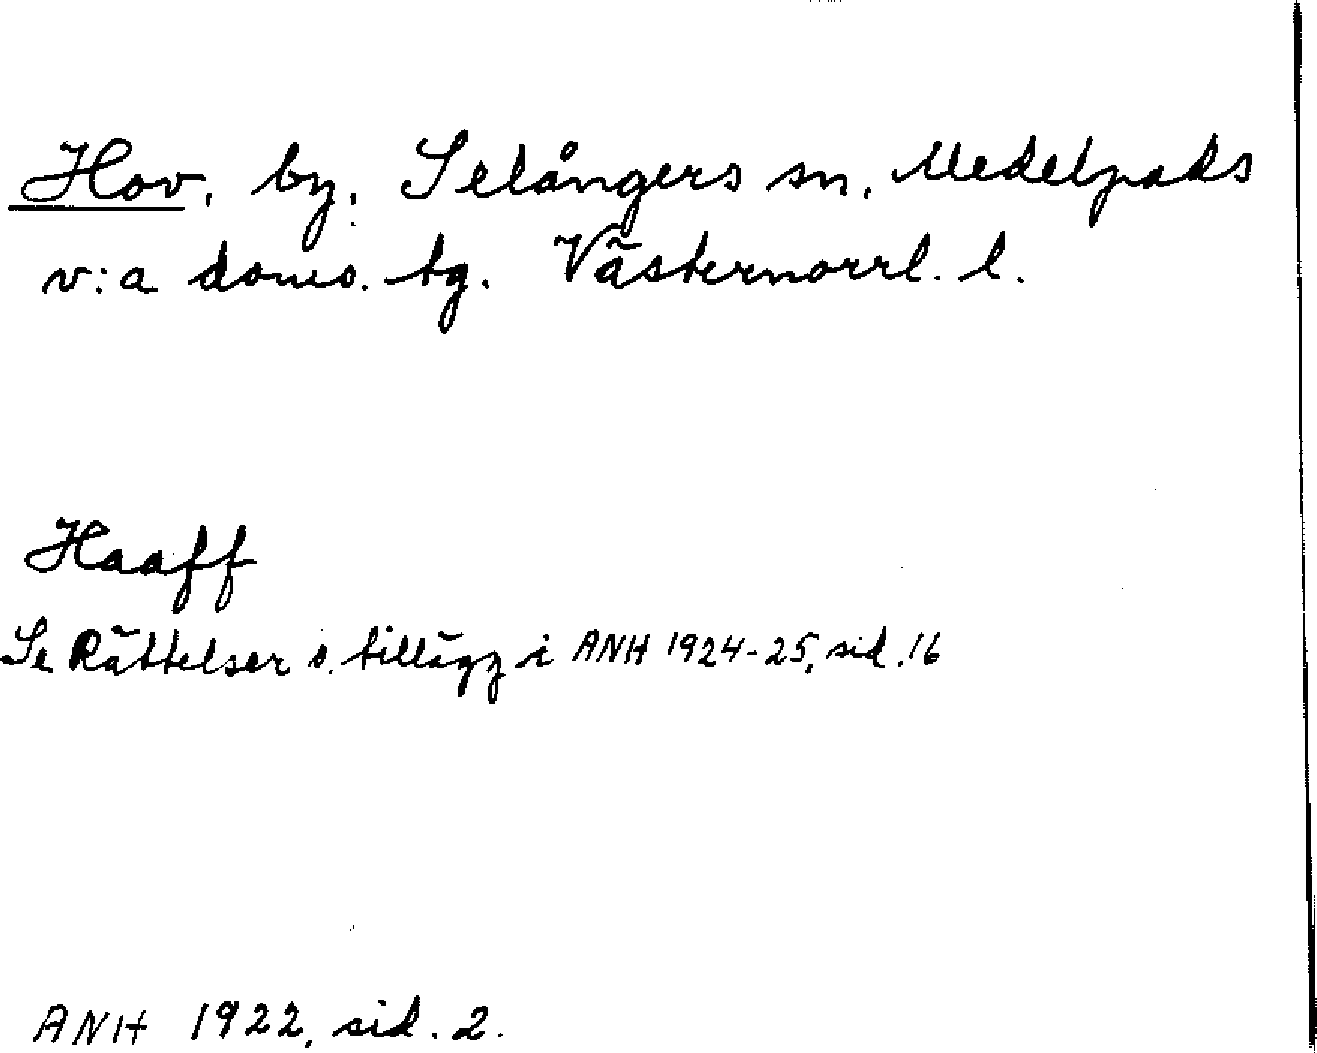 Hov, by, Selångers sn, Medelpads
v:a doms. tg. Västernorrl. l.
Haaff
Se Rättelser o. tillägg i ANH 1924-25, sid. 16
ANH 1922, sid. 2.